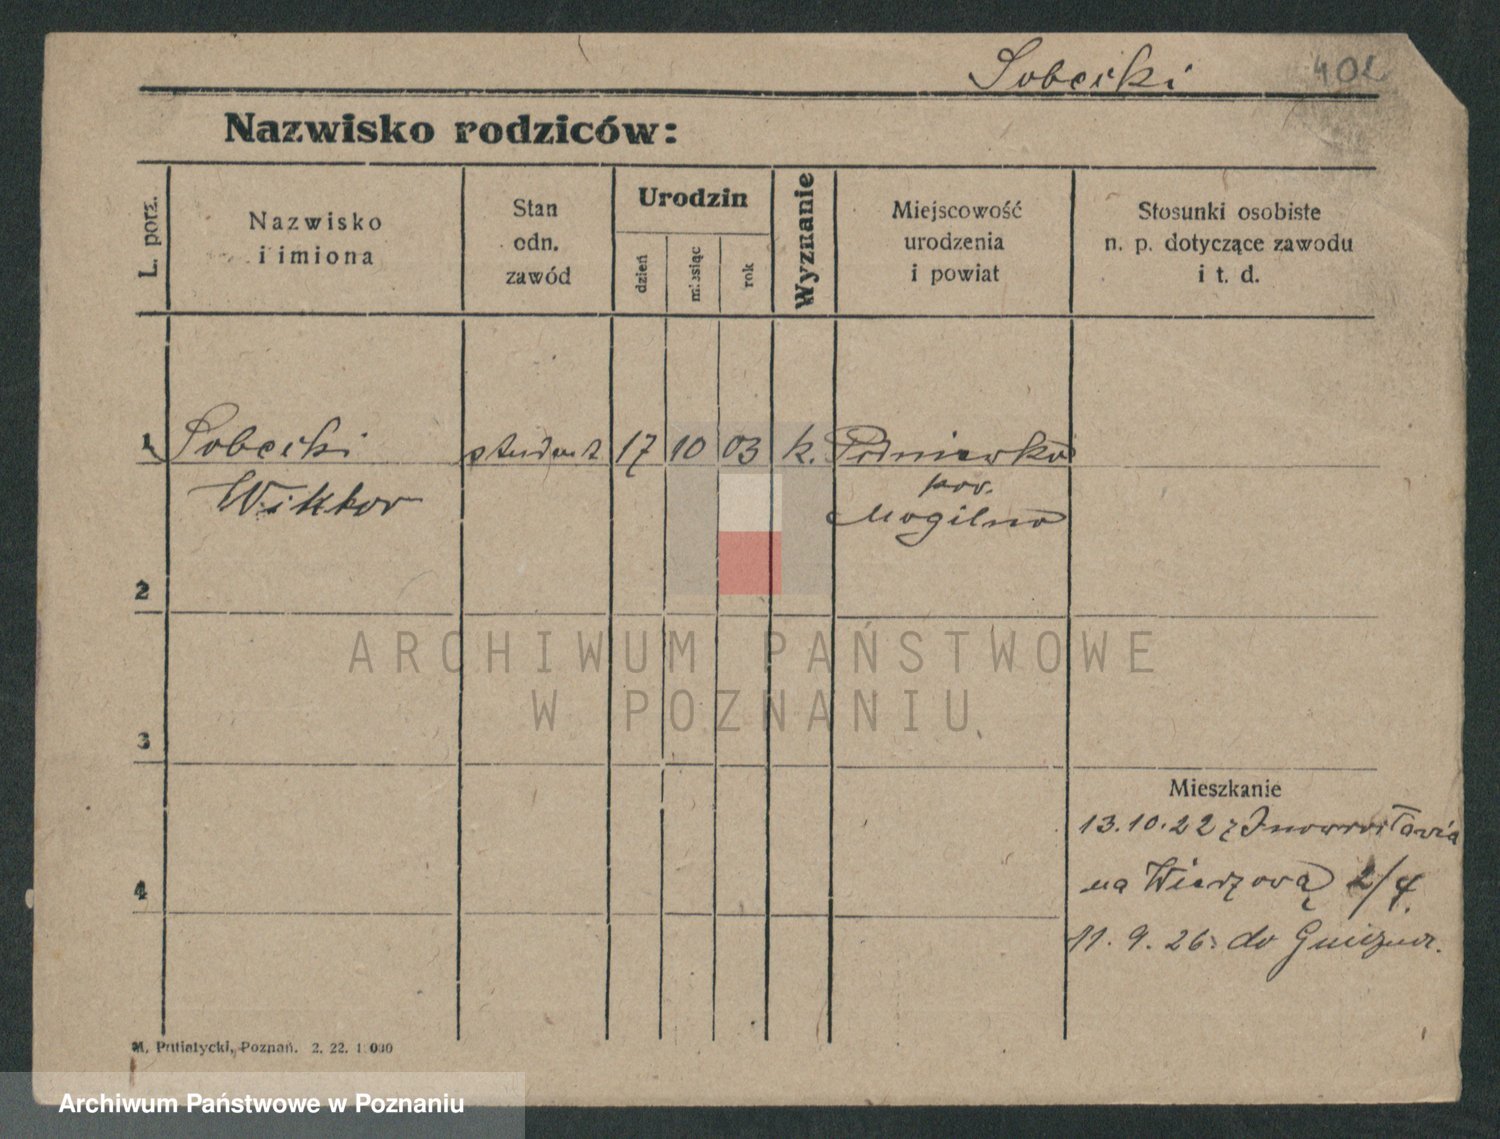 Sobecki 402
Nazwisko rodziców:
L. porz.
Nazwisko
i imiona
Stan
odn.
zawód
Urodzin
dzień
miesiąc
rok
Wyznanie
Miejscowość
urodzenia
i powiat
Stosunki osobiste
n. p. dotyczące zawodu
i t. d.
1 Sobecki student 17 10 03 k.
Wiktor pow.
Mogilno
2
ARCHIWUM PAŃSTWOWE
W POZNANIU
3
Mieszkanie
13.10.22 z Inowrocławia
na Wierzową 2/4.
4
11.9.26. do Gniezna.
M. Putiatycki, Poznań. 2. 22. 1.000
Archiwum Państwowe w Poznaniu